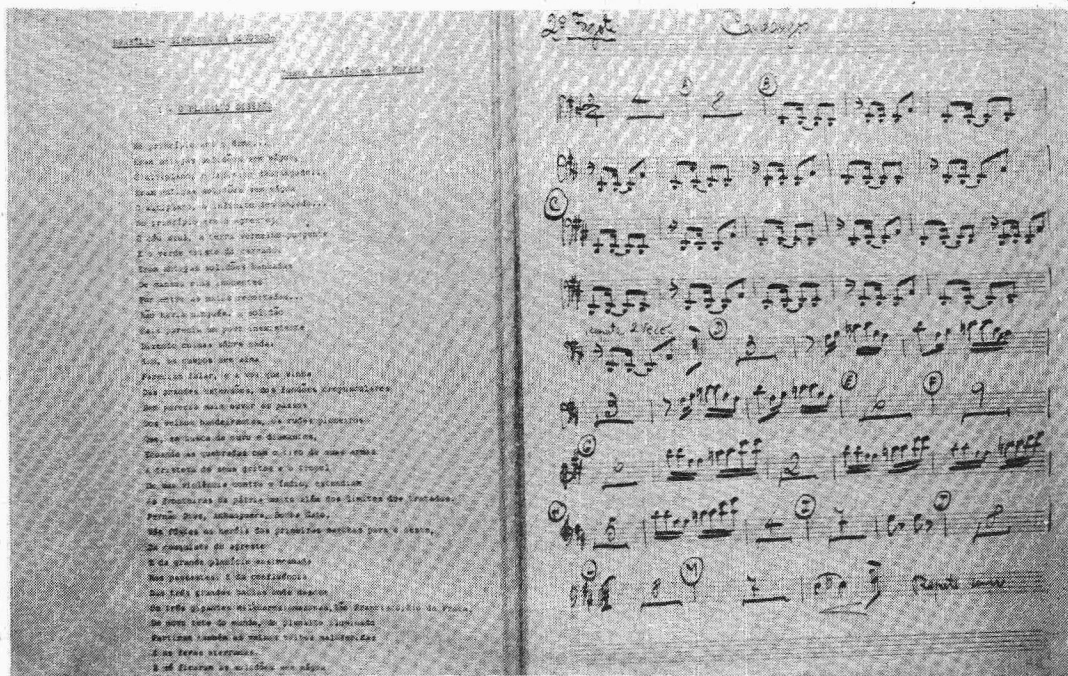 BRASÍLIA - SINFONIA DA ALVORADA
Texto de Vinicius de Moraes
I - O PLANALTO DESERTO
No princípio era o êrmo...
Eram antigas solidões sem mágoa,
O altiplano, o infinito descampado...
Eram antigas solidões sem mágoa
O altiplano, o infinito descampado...
No princípio era o agreste:
O céu azul, a terra vermelho-pungente
E o verde triste do cerrado.
Eram antigas solidões banhadas
De mansos rios inocentes
Por entre as matas recortadas...
Não havia ninguém. A solidão
Mais parecia um povo inexistente
Dizendo coisas sôbre nada.
Sim, os campos sem alma
Pareciam falar, e a voz que vinha
Das grandes extensões, dos fundões crepusculares
Nem parecia mais ouvir os passos
Dos velhos bandeirantes, os rudes pioneiros
Que, em busca de ouro e diamantes,
Ecoando as quebradas com o tiro de suas armas
A tristeza de seus gritos e o tropel
De sua violência contra o índio, estendiam
As fronteiras da pátria muito além dos limites dos tratados.
Fernão Dias, Anhanguera, Borba Gato,
Vós fôstes os heróis das primeiras marchas para o oeste,
Da conquista do agreste
E da grande planície ensimesmada
Mas passastes. E da confluência
Das três grandes bacias
Dos três gigantes milenares: Amazonas, São Francisco, Rio da Prata,
Do novo teto do mundo, do planalto iluminado
Partiram também as velhas tribos malferidas
E as feras aterradas.
E só ficaram as solidões sem mágoa
2º Fagote
4 A 2 B
C
repete 2 vezes D 3
3 E 6 F 9
G 2
H 5 4 I 7 J 8
L 8 M 7